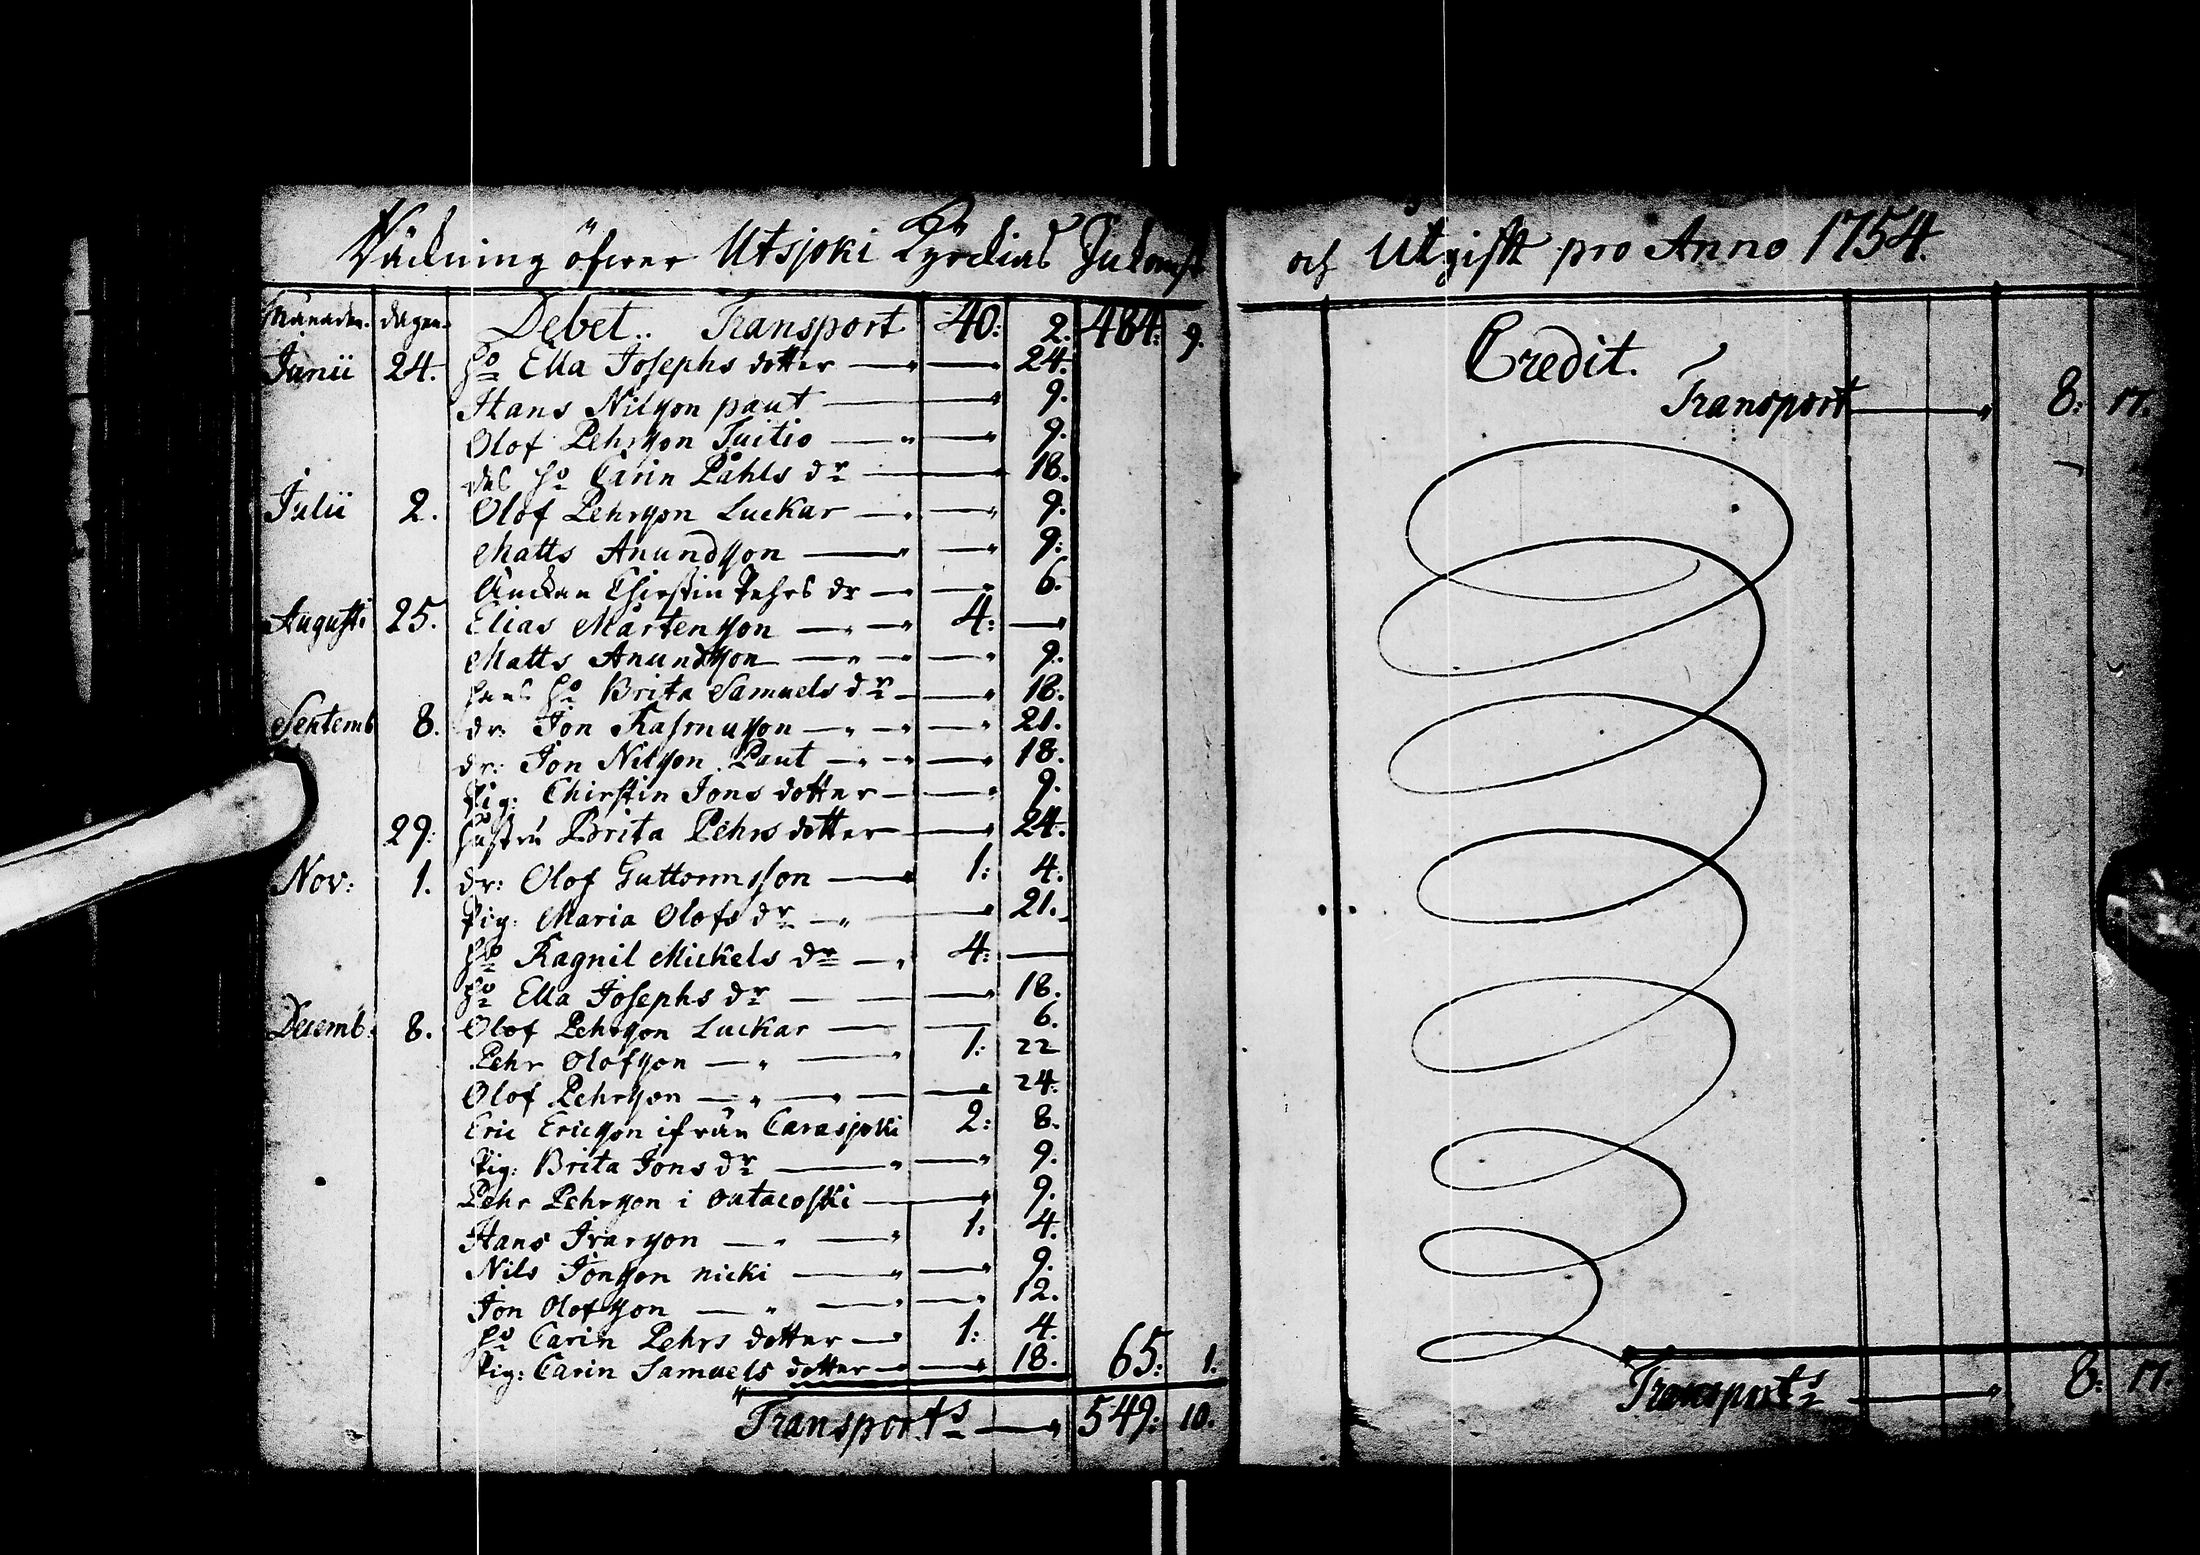 Räckning öfwer Utsjoki Kyrckias Inkomst
Månaden. dagen. Debet.. Transport 40: 2. 484: 9.
Junii 24. ho Ella Josephs dotter — — 24.
Hans Nilsson paut — 9.
Olof Pehrsson Tuitio — — 9.
des ho Carin Påhls dr — 18.
Julii 2. Olof Pehrsson Luckar — — 9.
Matts Anundsson — — 9:
Änckan Chirstin Pehrs dr — — 6.
Augusti 25. Elias Mårtensson — — 4: —
Matts Anundsson — — — 9.
hans ho Brita Samuels dr — — 18.
Septemb 8. dr: Jon Rasmusson — — — 21.
dr: Jon Nilsson Paut — — — 18.
Pig: Chirstin Jons dotter — — 9.
29: hustru Brita Pehrs dotter — 24.
Nov: 1. dr: Olof Guttormsson — 1: 4.
Pig: Maria Olofs dr — — 21.
ho Ragnil Mickels dr — 4: —
ho Ella Josephs dr — — — 18.
Decemb: 8. Olof Pehrsson Luckar — — 6.
Pehr Olofsson — — 1: 22
Olof Pehrsson — — — — 24.
Eric Ericsson ifrån Carasjoki 2: 8.
Pig: Brita Jons dr — — 9.
Pehr Pehrsson i outacoski — 9.
Hans Ivarsson — — 1: 4.
Nils Jonsson nicki — — 9.
Jon Olofsson — — — 12.
ho Carin Pehrs dotter — 1: 4.
Pig: Carin Samuels dotter — — 18. 65: 1.
Transports — 549: 10.
och Utgifft pro Anno 1754.
Credit.
Transport — 8: 17.
Transports — 8: 17.